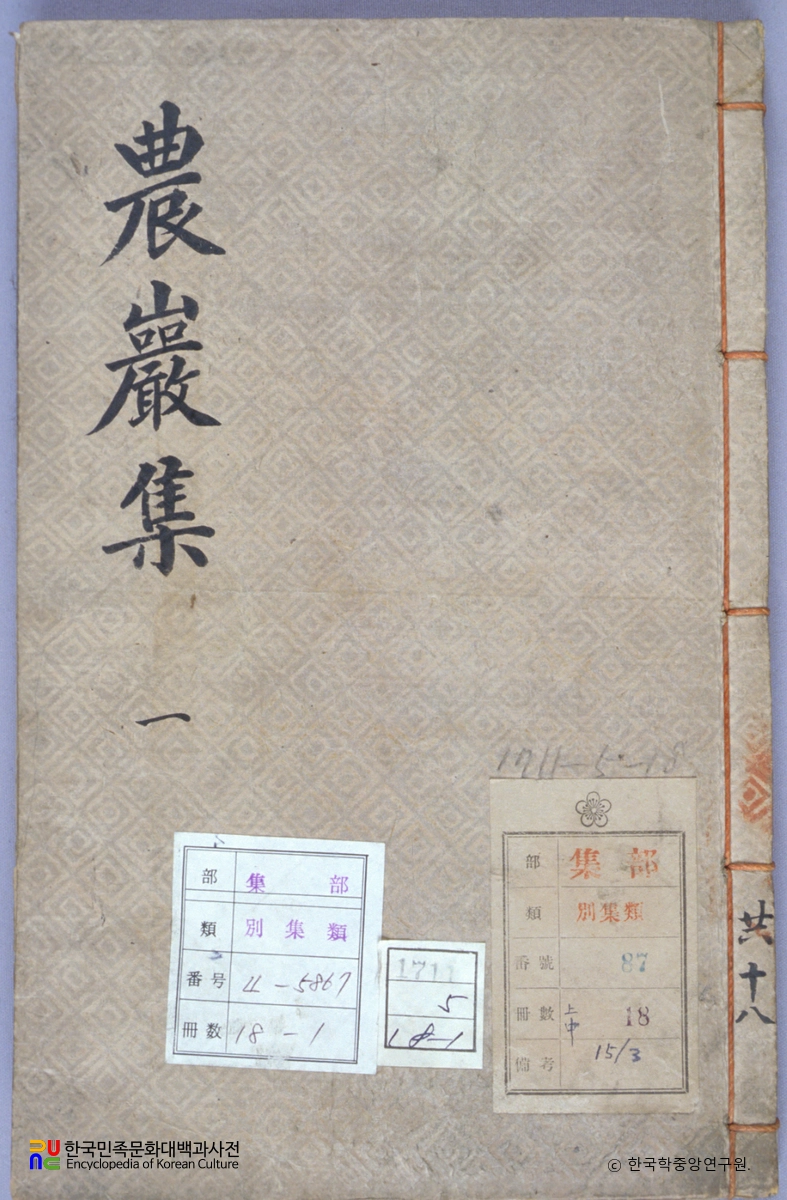 農巖集
一
1711-5-18
部 集部
類 別集類
番号 4-5867
冊数 18-1
1711
5
18-1
部 集部
類 別集類
番號 87
冊數 上中 18
備考 15/3
共十八
한국민족문화대백과사전
Encyclopedia of Korean Culture
© 한국학중앙연구원.